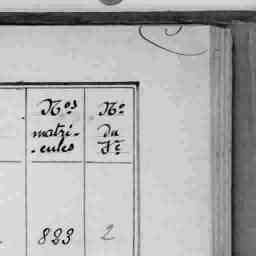 Nos No
matri- Du
-cules Fe
823 2